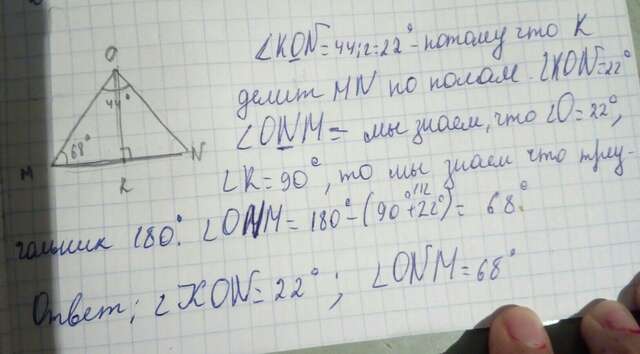 ∠KON=44:2=22°-потому что K
делит MN по полам. ∠KON=22°
∠ONM= мы знаем, что ∠O=22°,
∠K=90°, то мы знаем что треу-
гольник 180°. ∠ONM=180°-(90°+22°)= 68°
Ответ; ∠KON=22°; ∠ONM=68°
O
44°
68°
M
N
K